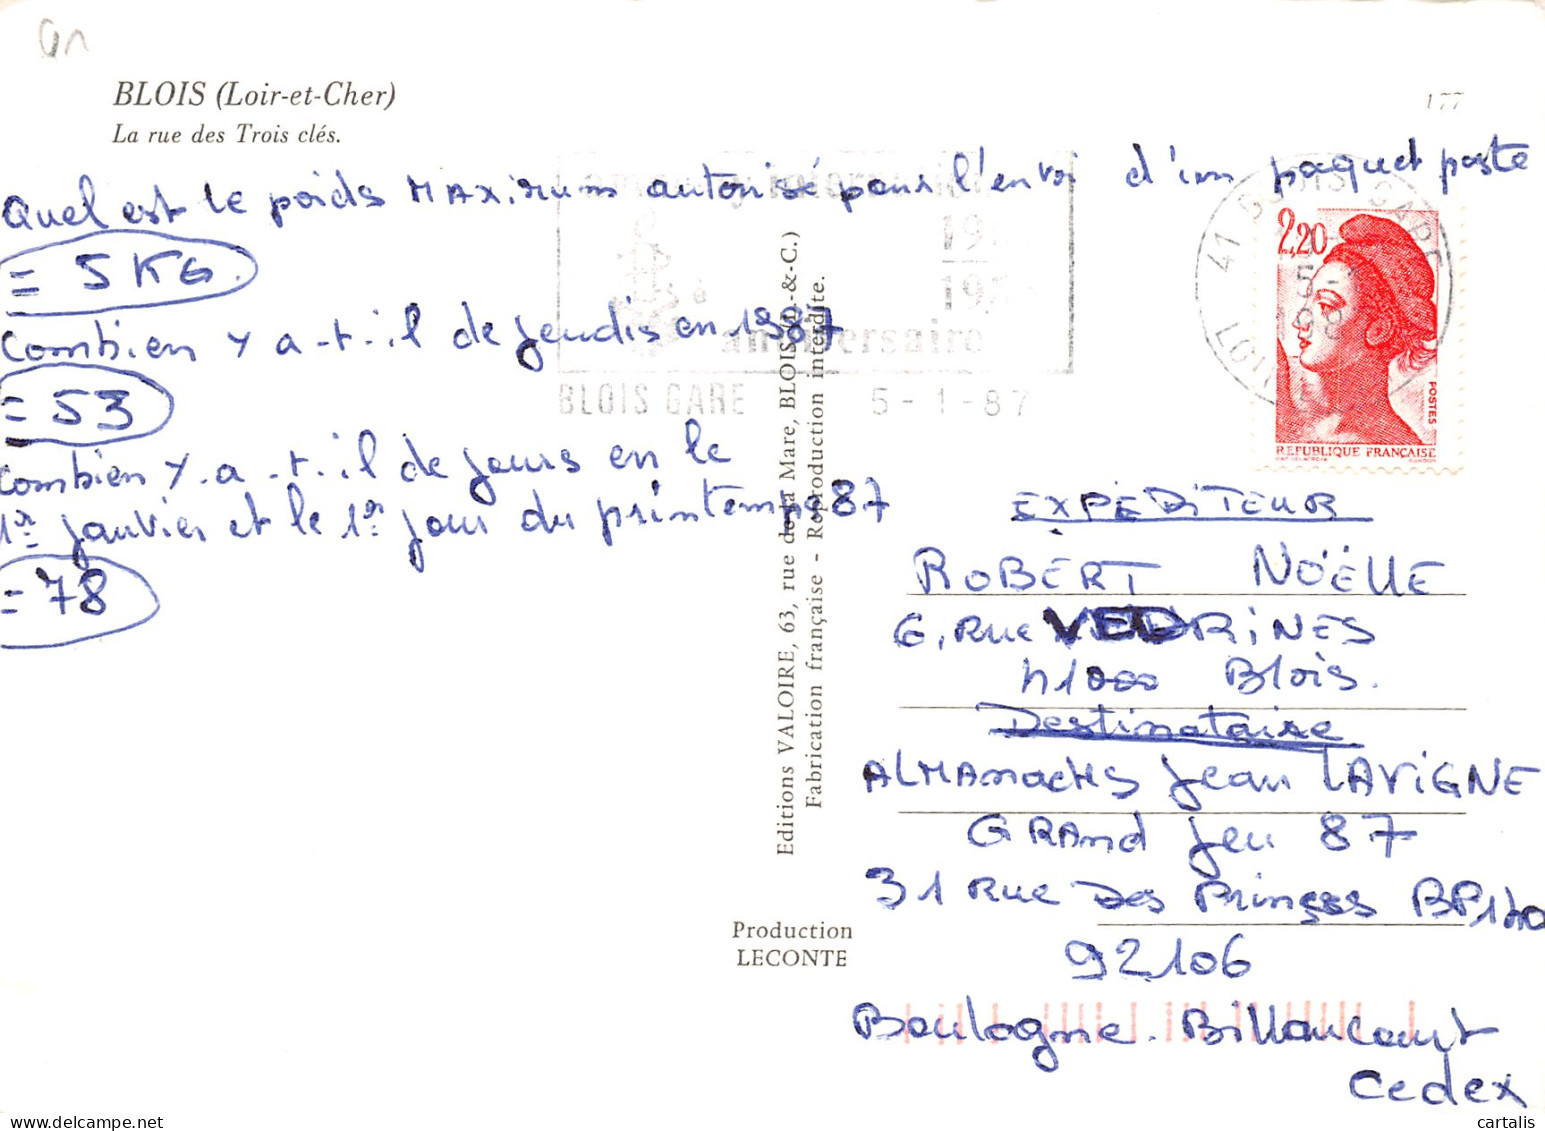 BLOIS (Loir-et-Cher)
La rue des Trois clés.
177
Quel est le poids MAXimum autorisé pour l'envoi d'un paquet poste
= 5 KG.
Combien y a-t-il de jeudis en 1987
= 53
Combien y.a-t-il de jours en le
1er janvier et le 1er jour du printemps 87
= 78
amnesty international
anniversaire
BLOIS GARE 5-1-87
41 BLOIS GARE
2,20
POSTES
REPUBLIQUE FRANÇAISE
Editions VALOIRE, 63, rue de la Mare, BLOIS (L.-&-C.)
Fabrication française - Reproduction interdite.
Production
LECONTE
EXPÉDiTEUR
ROBERT NOËLLE
6, Rue VEDRiNES
41000 Blois.
Destinataire
ALMAnachs Jean LAViGNE
GRAnd Jeu 87
31 Rue Des Prinses BP140
92106
Boulogne-Billancourt
Cedex
cartalis www.delcampe.net